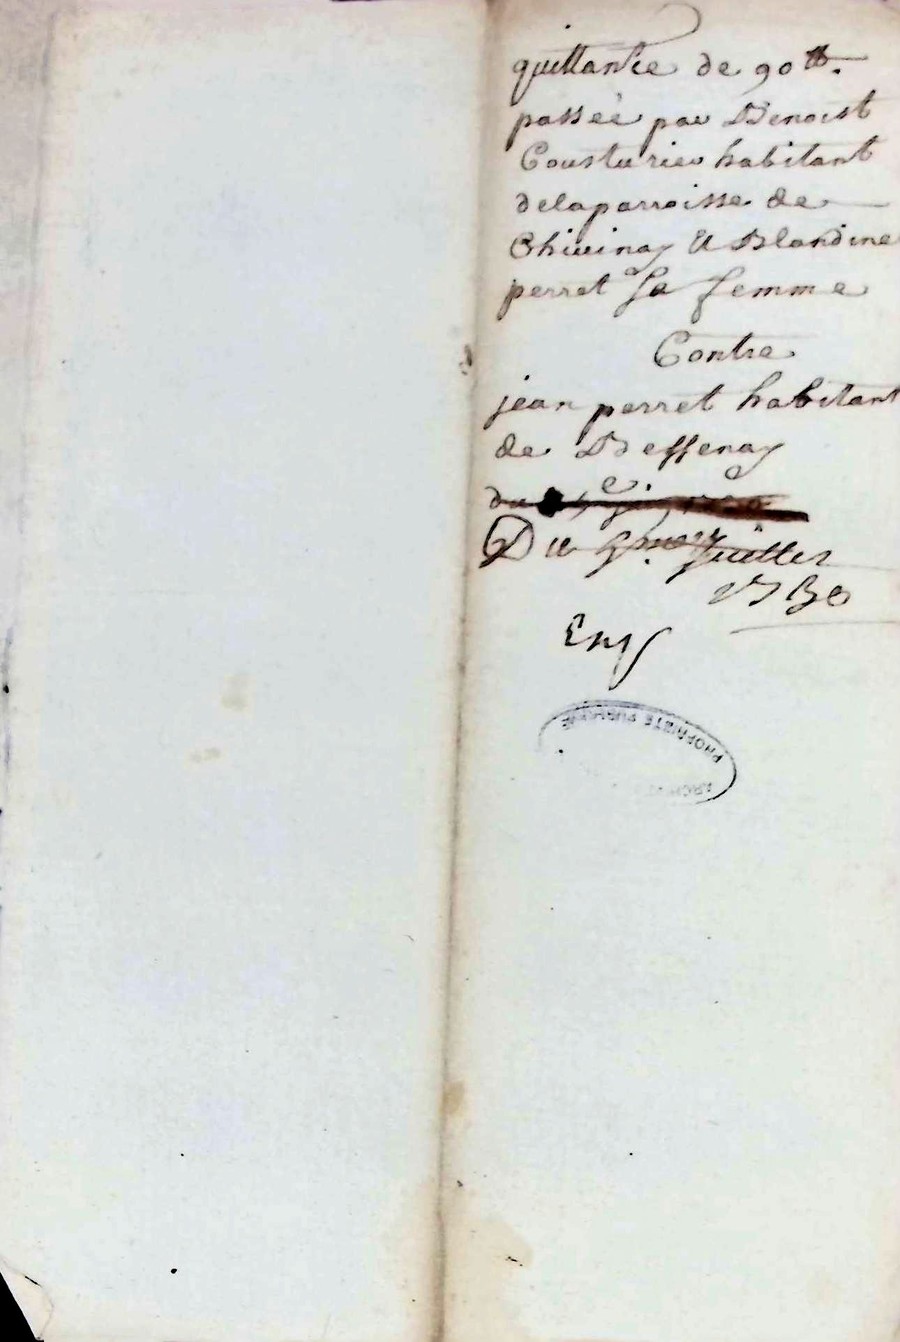 quittance de 90 ₶.
passée par Benoist
Cousturier habitant
de la parroisse de
Chivinay et Blandine
perret sa femme
Contre
jean perret habitant
de Bessenay
du
Du juillet
Ens
PROPRIETE PUBLIQUE
ARCHIVES